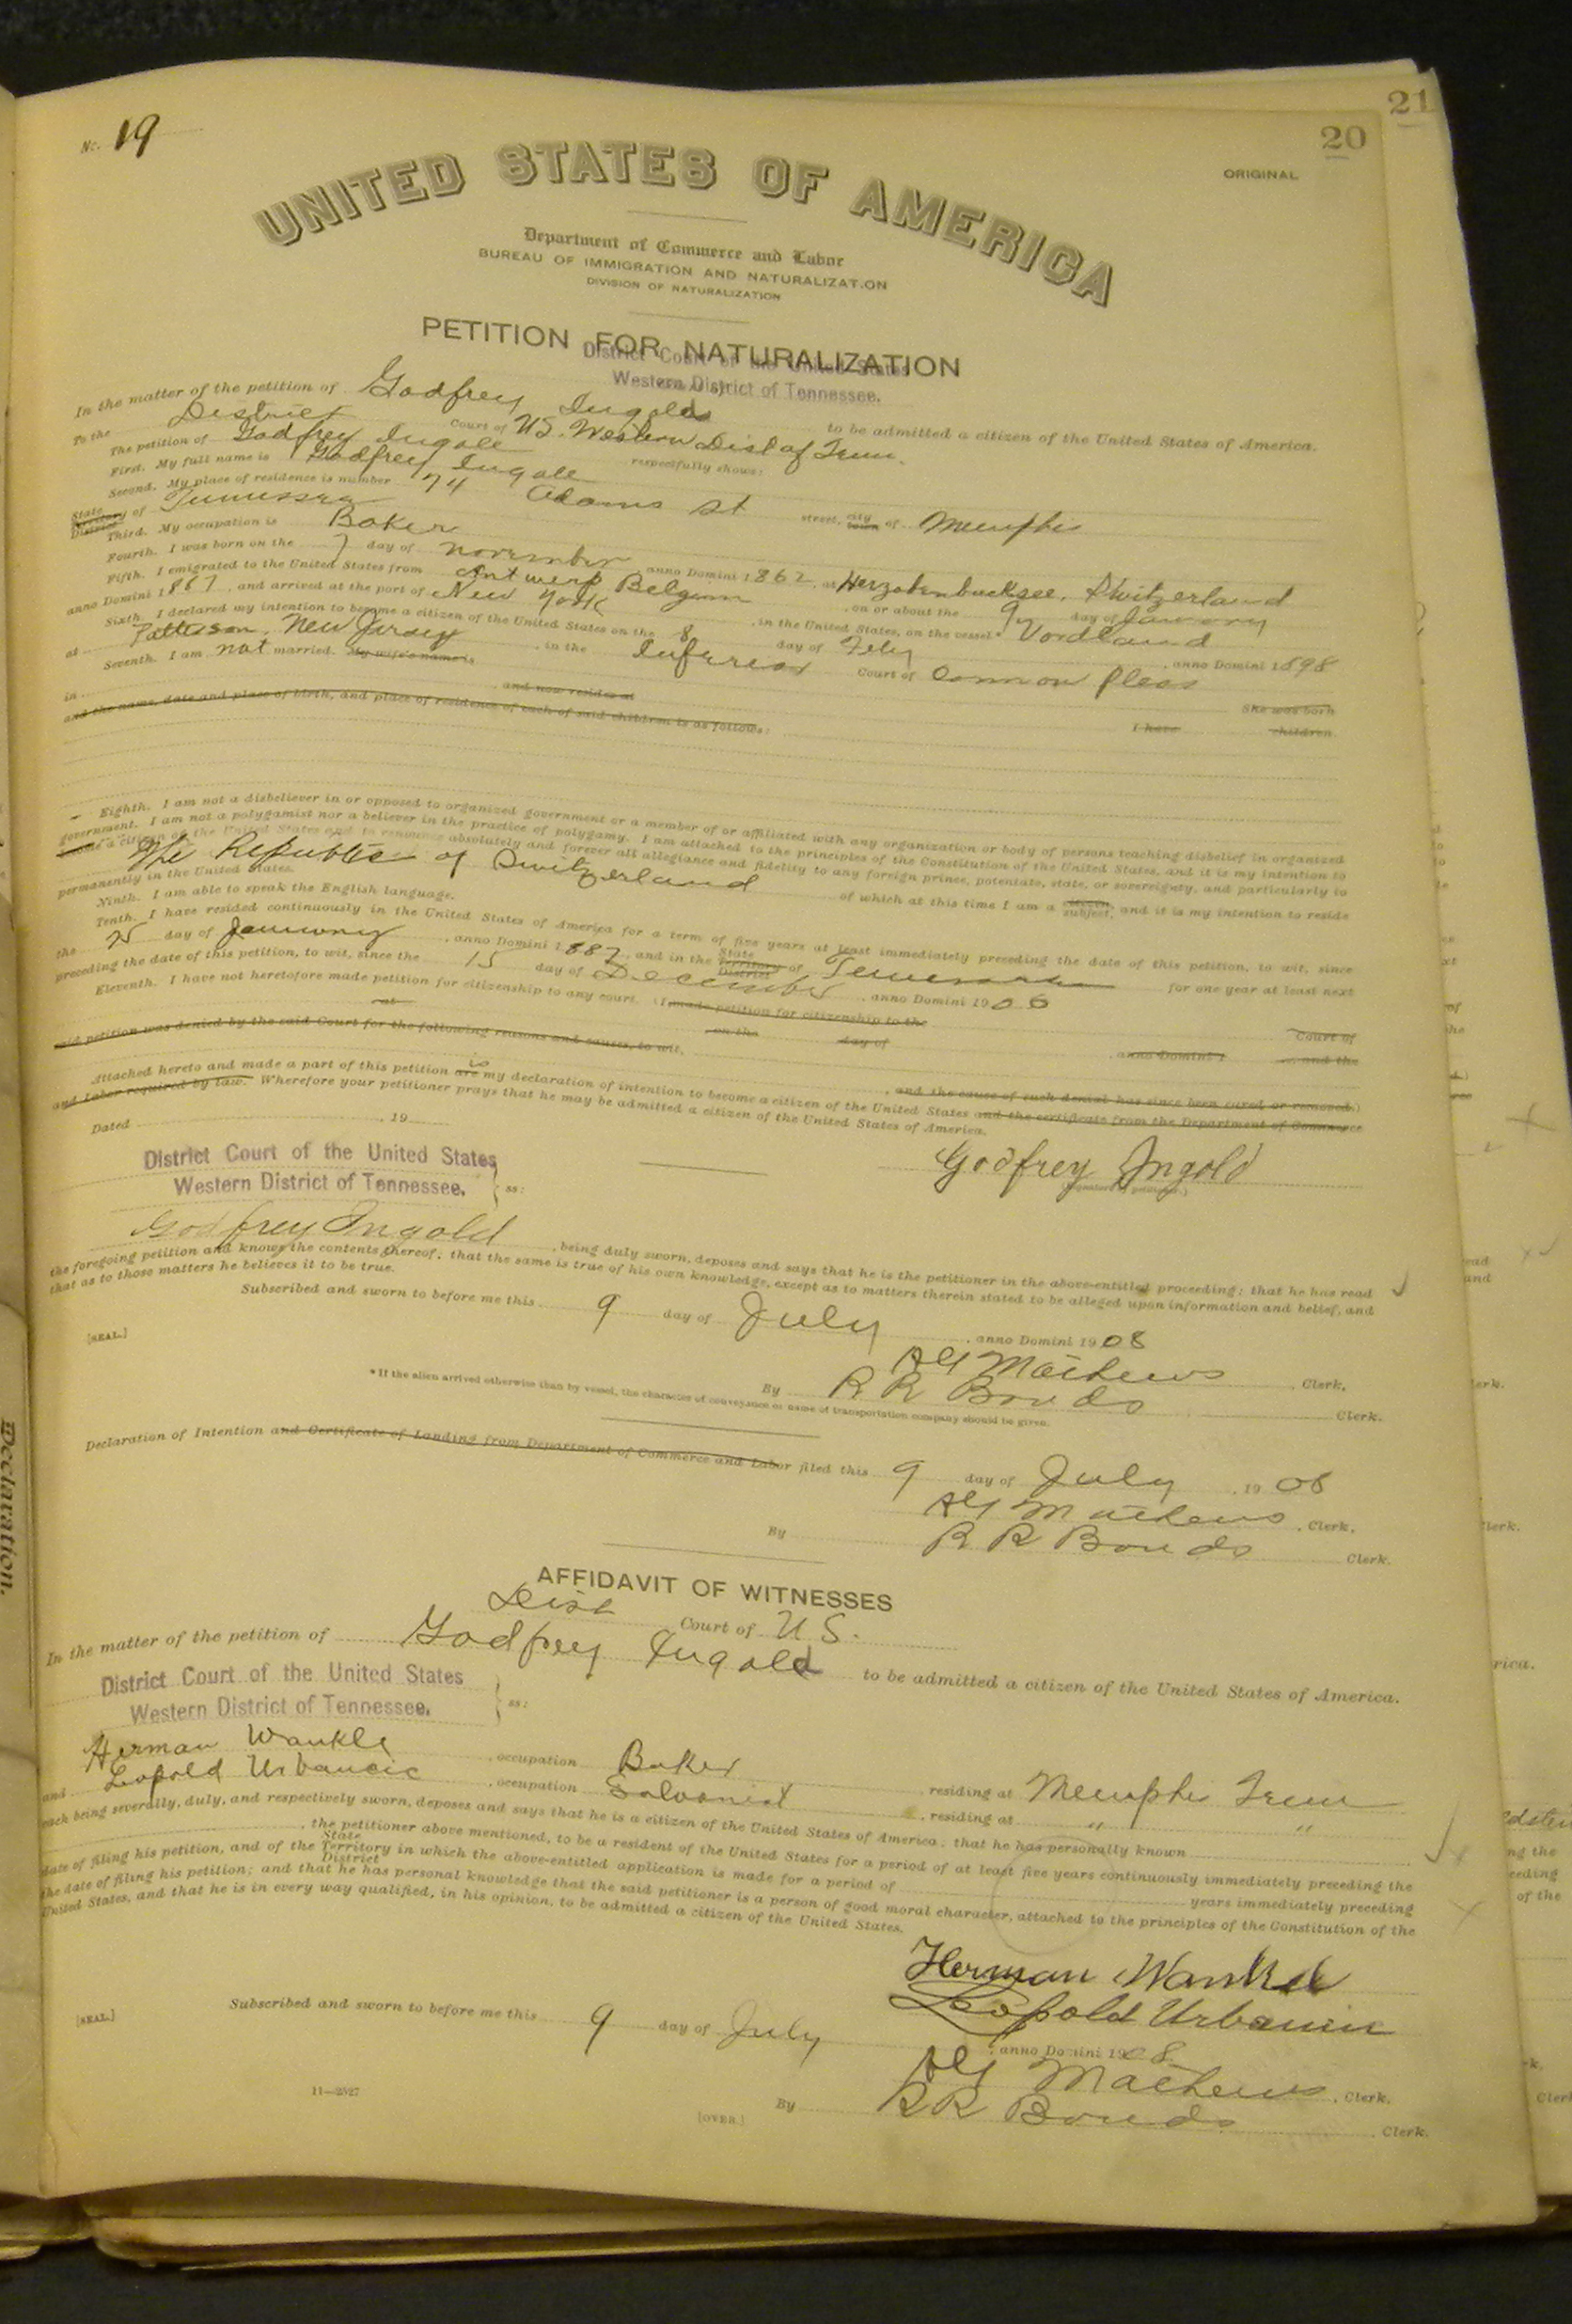 21
20
No. 19
ORIGINAL
UNITED STATES OF AMERICA
Department of Commerce and Labor
BUREAU OF IMMIGRATION AND NATURALIZATION
DIVISION OF NATURALIZATION
PETITION FOR NATURALIZATION
District Court of the United States
Western District of Tennessee.
In the matter of the petition of Godfrey Ingold to be admitted a citizen of the United States of America.
To the District Court of U.S. Western Dist of Tenn.
The petition of Godfrey Ingold respectfully shows:
First. My full name is Godfrey Ingold
Second. My place of residence is number 74 Adams St street, city town of Memphis
State Territory District of Tennessee
Third. My occupation is Baker
Fourth. I was born on the 7 day of November anno Domini 1862, at Herzogenbuchsee, Switzerland
Fifth. I emigrated to the United States from Antwerp Belgium, on or about the 9 day of January
anno Domini 1887, and arrived at the port of New York, in the United States, on the vessel* Nordland
Sixth. I declared my intention to become a citizen of the United States on the 8 day of Feby, anno Domini 1898
at Patterson, New Jersey, in the Inferior Court of Common Pleas
Seventh. I am not married. My wife's name is She was born
in and now resides at I have children
and the name, date and place of birth, and place of residence of each of said children is as follows:
Eighth. I am not a disbeliever in or opposed to organized government or a member of or affiliated with any organization or body of persons teaching disbelief in organized
government. I am not a polygamist nor a believer in the practice of polygamy. I am attached to the principles of the Constitution of the United States, and it is my intention to
become a citizen of the United States and to renounce absolutely and forever all allegiance and fidelity to any foreign prince, potentate, state, or sovereignty, and particularly to
The Republic of Switzerland of which at this time I am a citizen subject, and it is my intention to reside
permanently in the United States.
Ninth. I am able to speak the English language.
Tenth. I have resided continuously in the United States of America for a term of five years at least immediately preceding the date of this petition, to wit, since
the 25 day of January, anno Domini 1887, and in the State Territory District of Tennessee for one year at least next
preceding the date of this petition, to wit, since the 15 day of December, anno Domini 1906
Eleventh. I have not heretofore made petition for citizenship to any court. (I made petition for citizenship to the Court of
at on the day of anno Domini 1 and the
said petition was denied by the said Court for the following reasons and causes, to wit,
, and the cause of such denial has since been cured or removed.)
Attached hereto and made a part of this petition are is my declaration of intention to become a citizen of the United States and the certificate from the Department of Commerce
and Labor required by law. Wherefore your petitioner prays that he may be admitted a citizen of the United States of America.
Dated , 19
Godfrey Ingold
(Signature of petitioner.)
District Court of the United States
Western District of Tennessee. ss:
Godfrey Ingold, being duly sworn, deposes and says that he is the petitioner in the above-entitled proceeding; that he has read
the foregoing petition and knows the contents thereof; that the same is true of his own knowledge, except as to matters therein stated to be alleged upon information and belief, and
that as to those matters he believes it to be true.
Subscribed and sworn to before me this 9 day of July, anno Domini 1908
[SEAL.]
Mathews Clerk.
By R R Bonds Clerk.
*If the alien arrived otherwise than by vessel, the character of conveyance or name of transportation company should be given.
Declaration of Intention and Certificate of Landing from Department of Commerce and Labor filed this 9 day of July, 1908
Mathews, Clerk.
By R R Bonds Clerk.
AFFIDAVIT OF WITNESSES
Dist Court of U S.
In the matter of the petition of Godfrey Ingold to be admitted a citizen of the United States of America.
District Court of the United States
Western District of Tennessee. ss:
Herman Wankle, occupation Baker, residing at Memphis Tenn
and Leopold Urbancic, occupation Saloonist, residing at " "
each being severally, duly, and respectively sworn, deposes and says that he is a citizen of the United States of America; that he has personally known
, the petitioner above mentioned, to be a resident of the United States for a period of at least five years continuously immediately preceding the
date of filing his petition, and of the State Territory District in which the above-entitled application is made for a period of years immediately preceding
the date of filing his petition; and that he has personal knowledge that the said petitioner is a person of good moral character, attached to the principles of the Constitution of the
United States, and that he is in every way qualified, in his opinion, to be admitted a citizen of the United States.
Herman
Leopold
Subscribed and sworn to before me this 9 day of July, anno Domini 1908
[SEAL.]
Mathews, Clerk.
By R R Bonds Clerk.
11—2527
[OVER.]
Declaration.